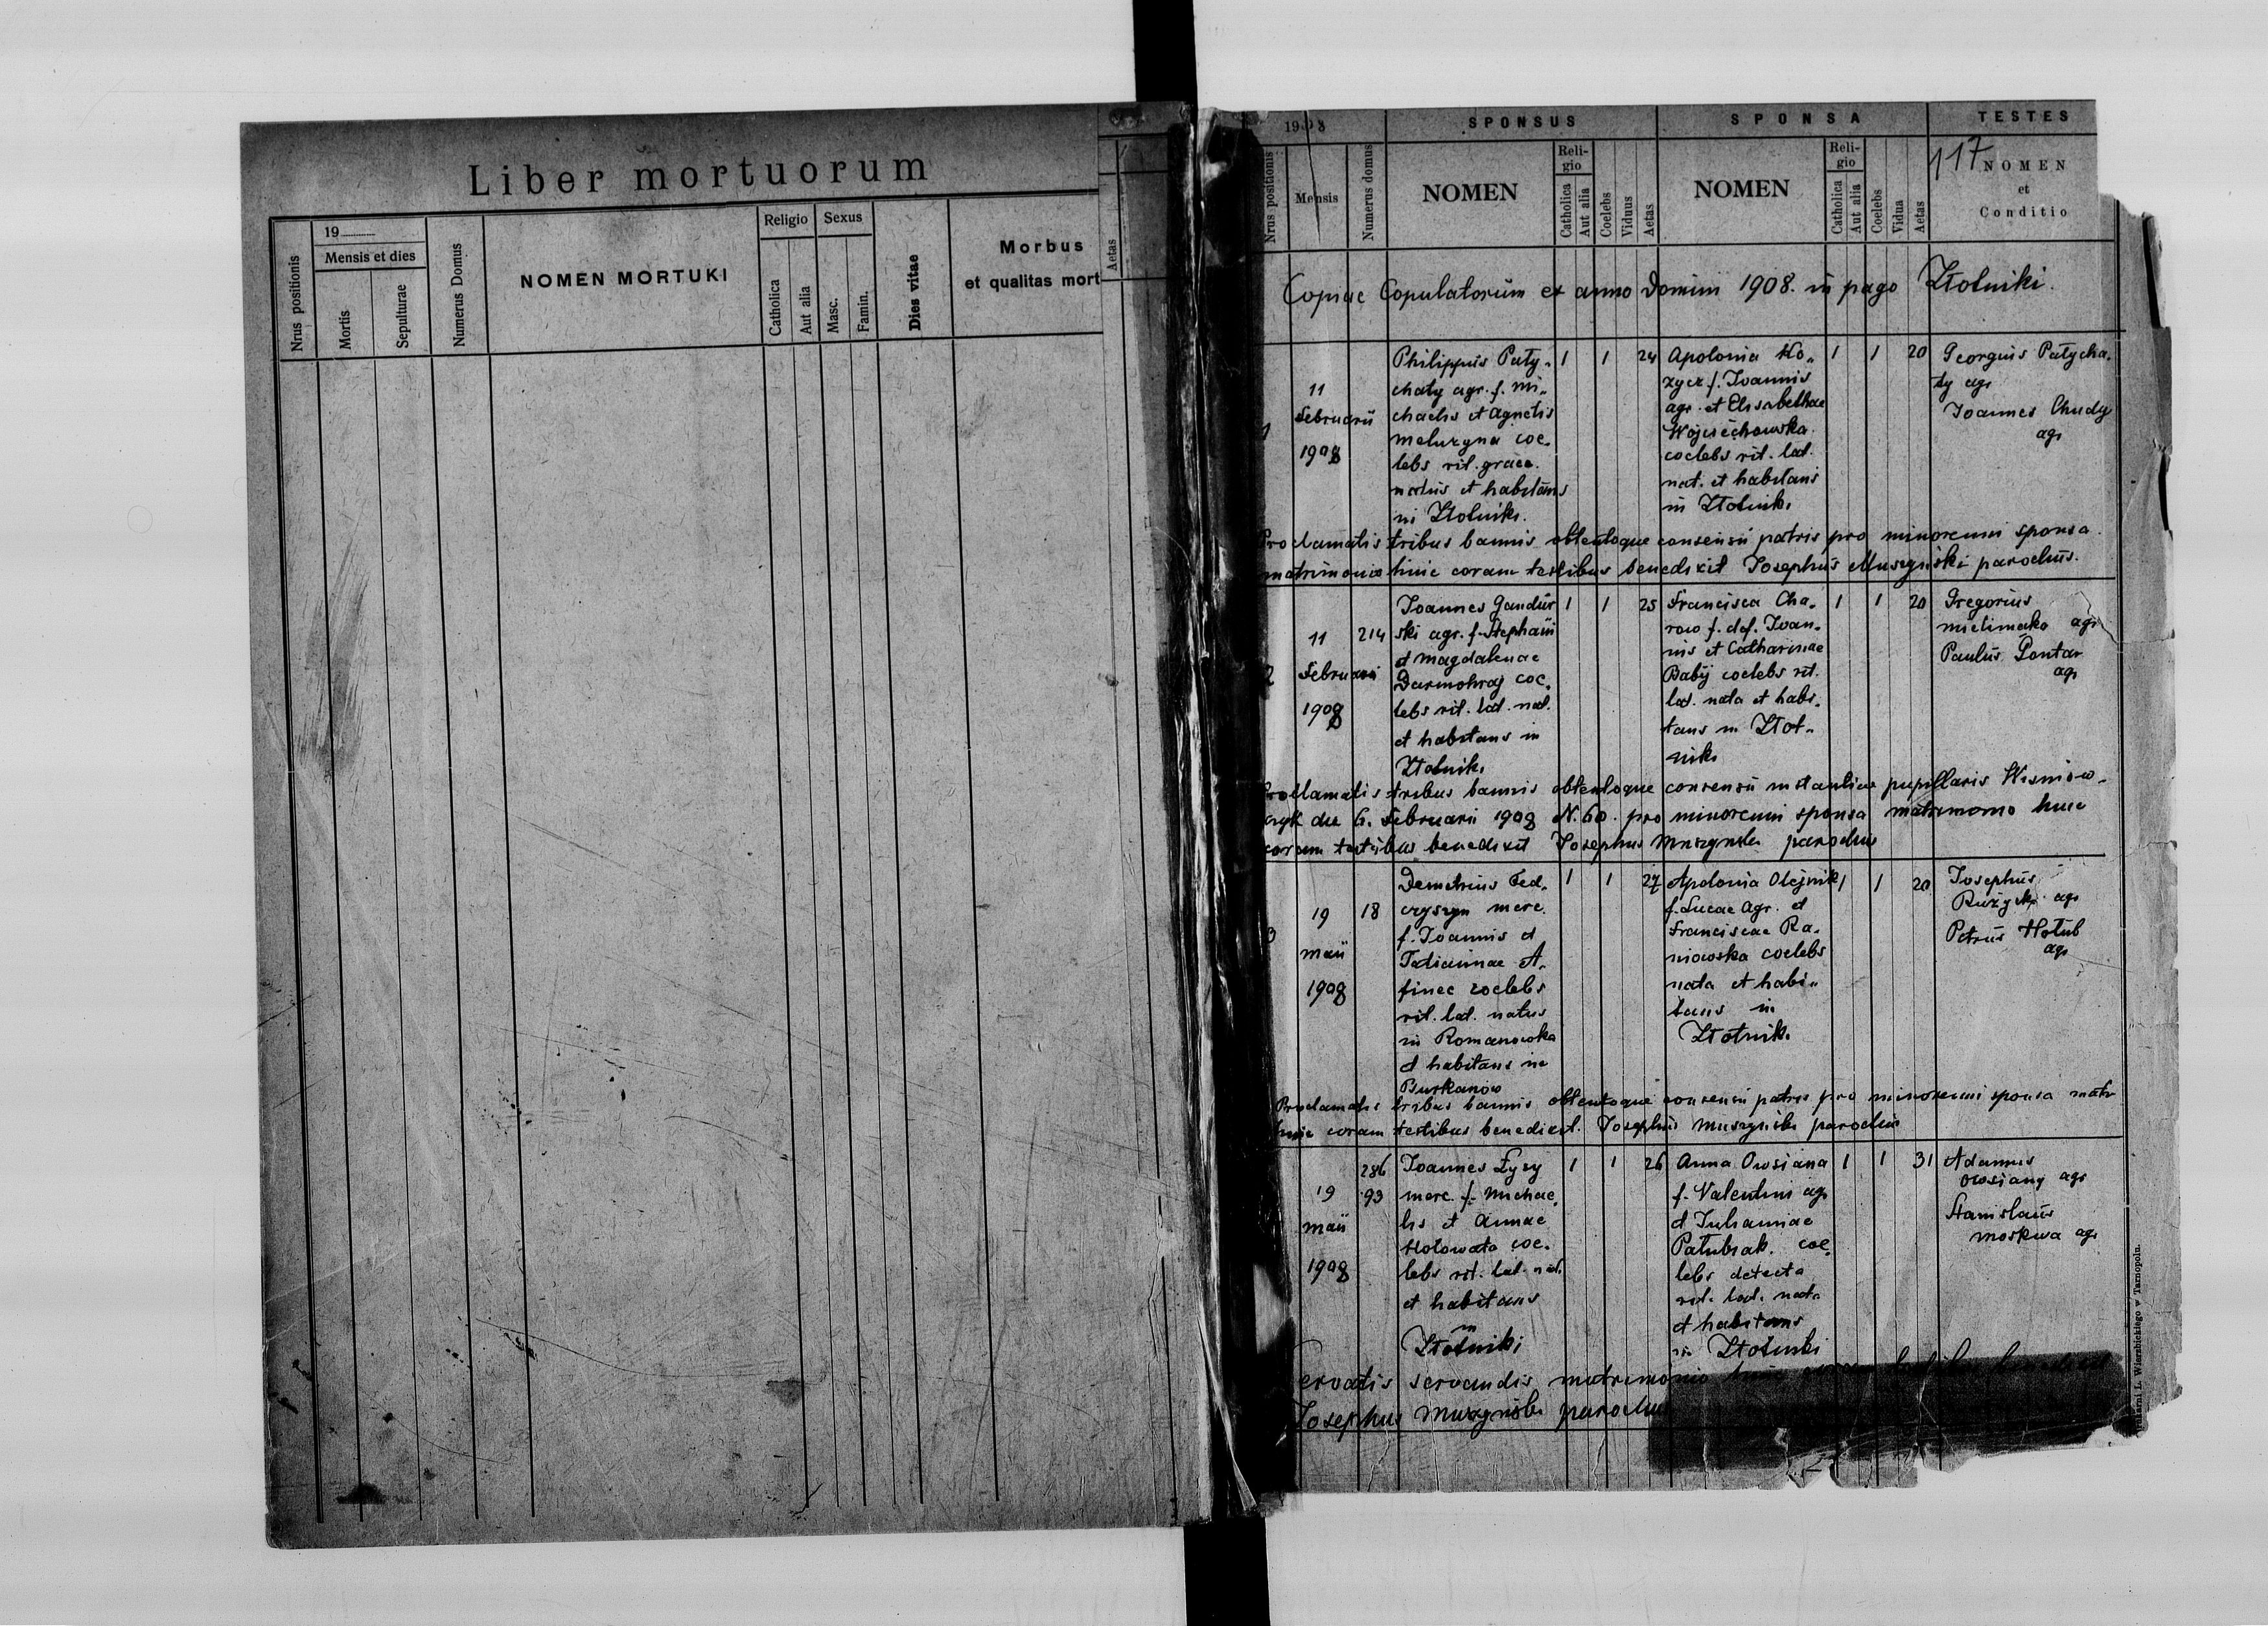 Liber mortuorum
Nrus positionis
19
Mensis et dies
Mortis
Sepulturae
Numerus Domus
NOMEN MORTUKI
Religio
Catholica
Aut alia
Sexus
Masc.
Famin.
Dies vitae
Morbus
et qualitas mort
Aetas
1908
SPONSUS
SPONSA
TESTES
Nrus positionis
Mensis
Numerus domus
NOMEN
Reli-
gio
Catholica
Aut alia
Coelebs
Viduus
Aetas
NOMEN
Reli-
gio
Catholica
Aut alia
Coelebs
Vidua
Aetas
117
NOMEN
et
Conditio
Copiae Copulatorum ex anno Domini 1908. in pago Złotniki.
1
11
Februarii
1908
Philippus Paty-
chaty agr. f. Mi-
chaelis et Agnetis
Meluzyna coe-
lebs rit. graec.
natus et habitans
in Złotniki.
1 1 24
Apolonia Ko-
zycz f. Joannis
agr. et Elisabethae
Wojciechowska
coelebs rit. lat.
nat. et habitans
in Złotniki
1 1 20
Georgius Patycha-
ty agr
Joannes Chudy
agr
Proclamatis tribus bannis obtentoque consensu patris pro minorenni sponsa
matrimonio huic coram testibus benedixit Josephus Muszyński parochus.
2
11
Februarii
1908
214
Joannes Gandur
ski agr. f. Stephani
et Magdalenae
Darmohraj coe-
lebs rit. lat. nat.
et habitans in
Złotniki
1 1 25
Francisca Cha-
row f. def. Joan-
nis et Catharinae
Babij coelebs rit.
lat. nata et habi-
tans in Złot-
niki
1 1 20
Gregorius
agr
Paulus Gontar
agr
Proclamatis tribus bannis obtentoque consensu instantiae pupillaris Wisniow-
czyk die 6. Februarii 1908 N. 60. pro minorenni sponsa matrimonio huic
coram testibus benedixit Josephus Muszyński parochus
3
19
Maii
1908
18
Demetrius Fed-
czyszyn merc.
f. Joannis et
Tatiannae A-
finec coelebs
rit. lat. natus
in Romanowka
et habitans in
Burkanów
1 1 27
Apolonia Olejnik
f. Lucae agr. et
Franciscae Ra-
niowska coelebs
nata et habi-
tans in
Złotniki
1 1 20
Josephus
Rużycki agr
Petrus Hołub
agr
Proclamatis tribus bannis obtentoque consensu patris pro minorenni sponsa matr
huic coram testibus benedixit. Josephus Muszyński parochus
19
Maii
1908
286
93
Joannes Łysy
merc. f. Michae-
lis et Annae
Hołowata coe-
lebs rit. lat. nat.
et habitans
in
Złotniki
1 1 26
Anna Owsiana
f. Valentini agr
et Julianae
Patubiak. coe-
lebs detecta
rit. lat. nata
et habitans
in Złotniki
1 1 31
Adamus
Owsiany agr
Stanislaus
Moskwa agr
ervatis servandis matrimonio huic
Josephus Muszyński parochus
L. Wierzbickiego w Tarnopolu.